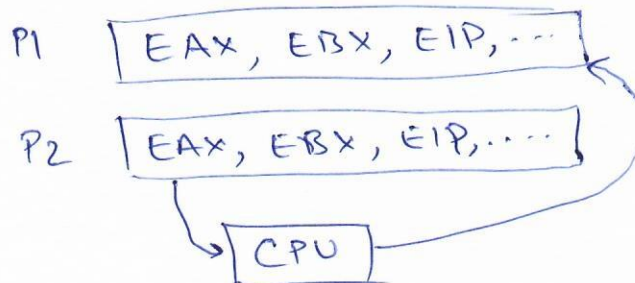 P1 EAX, EBX, EIP, ...
P2 EAX, EBX, EIP, ....
CPU